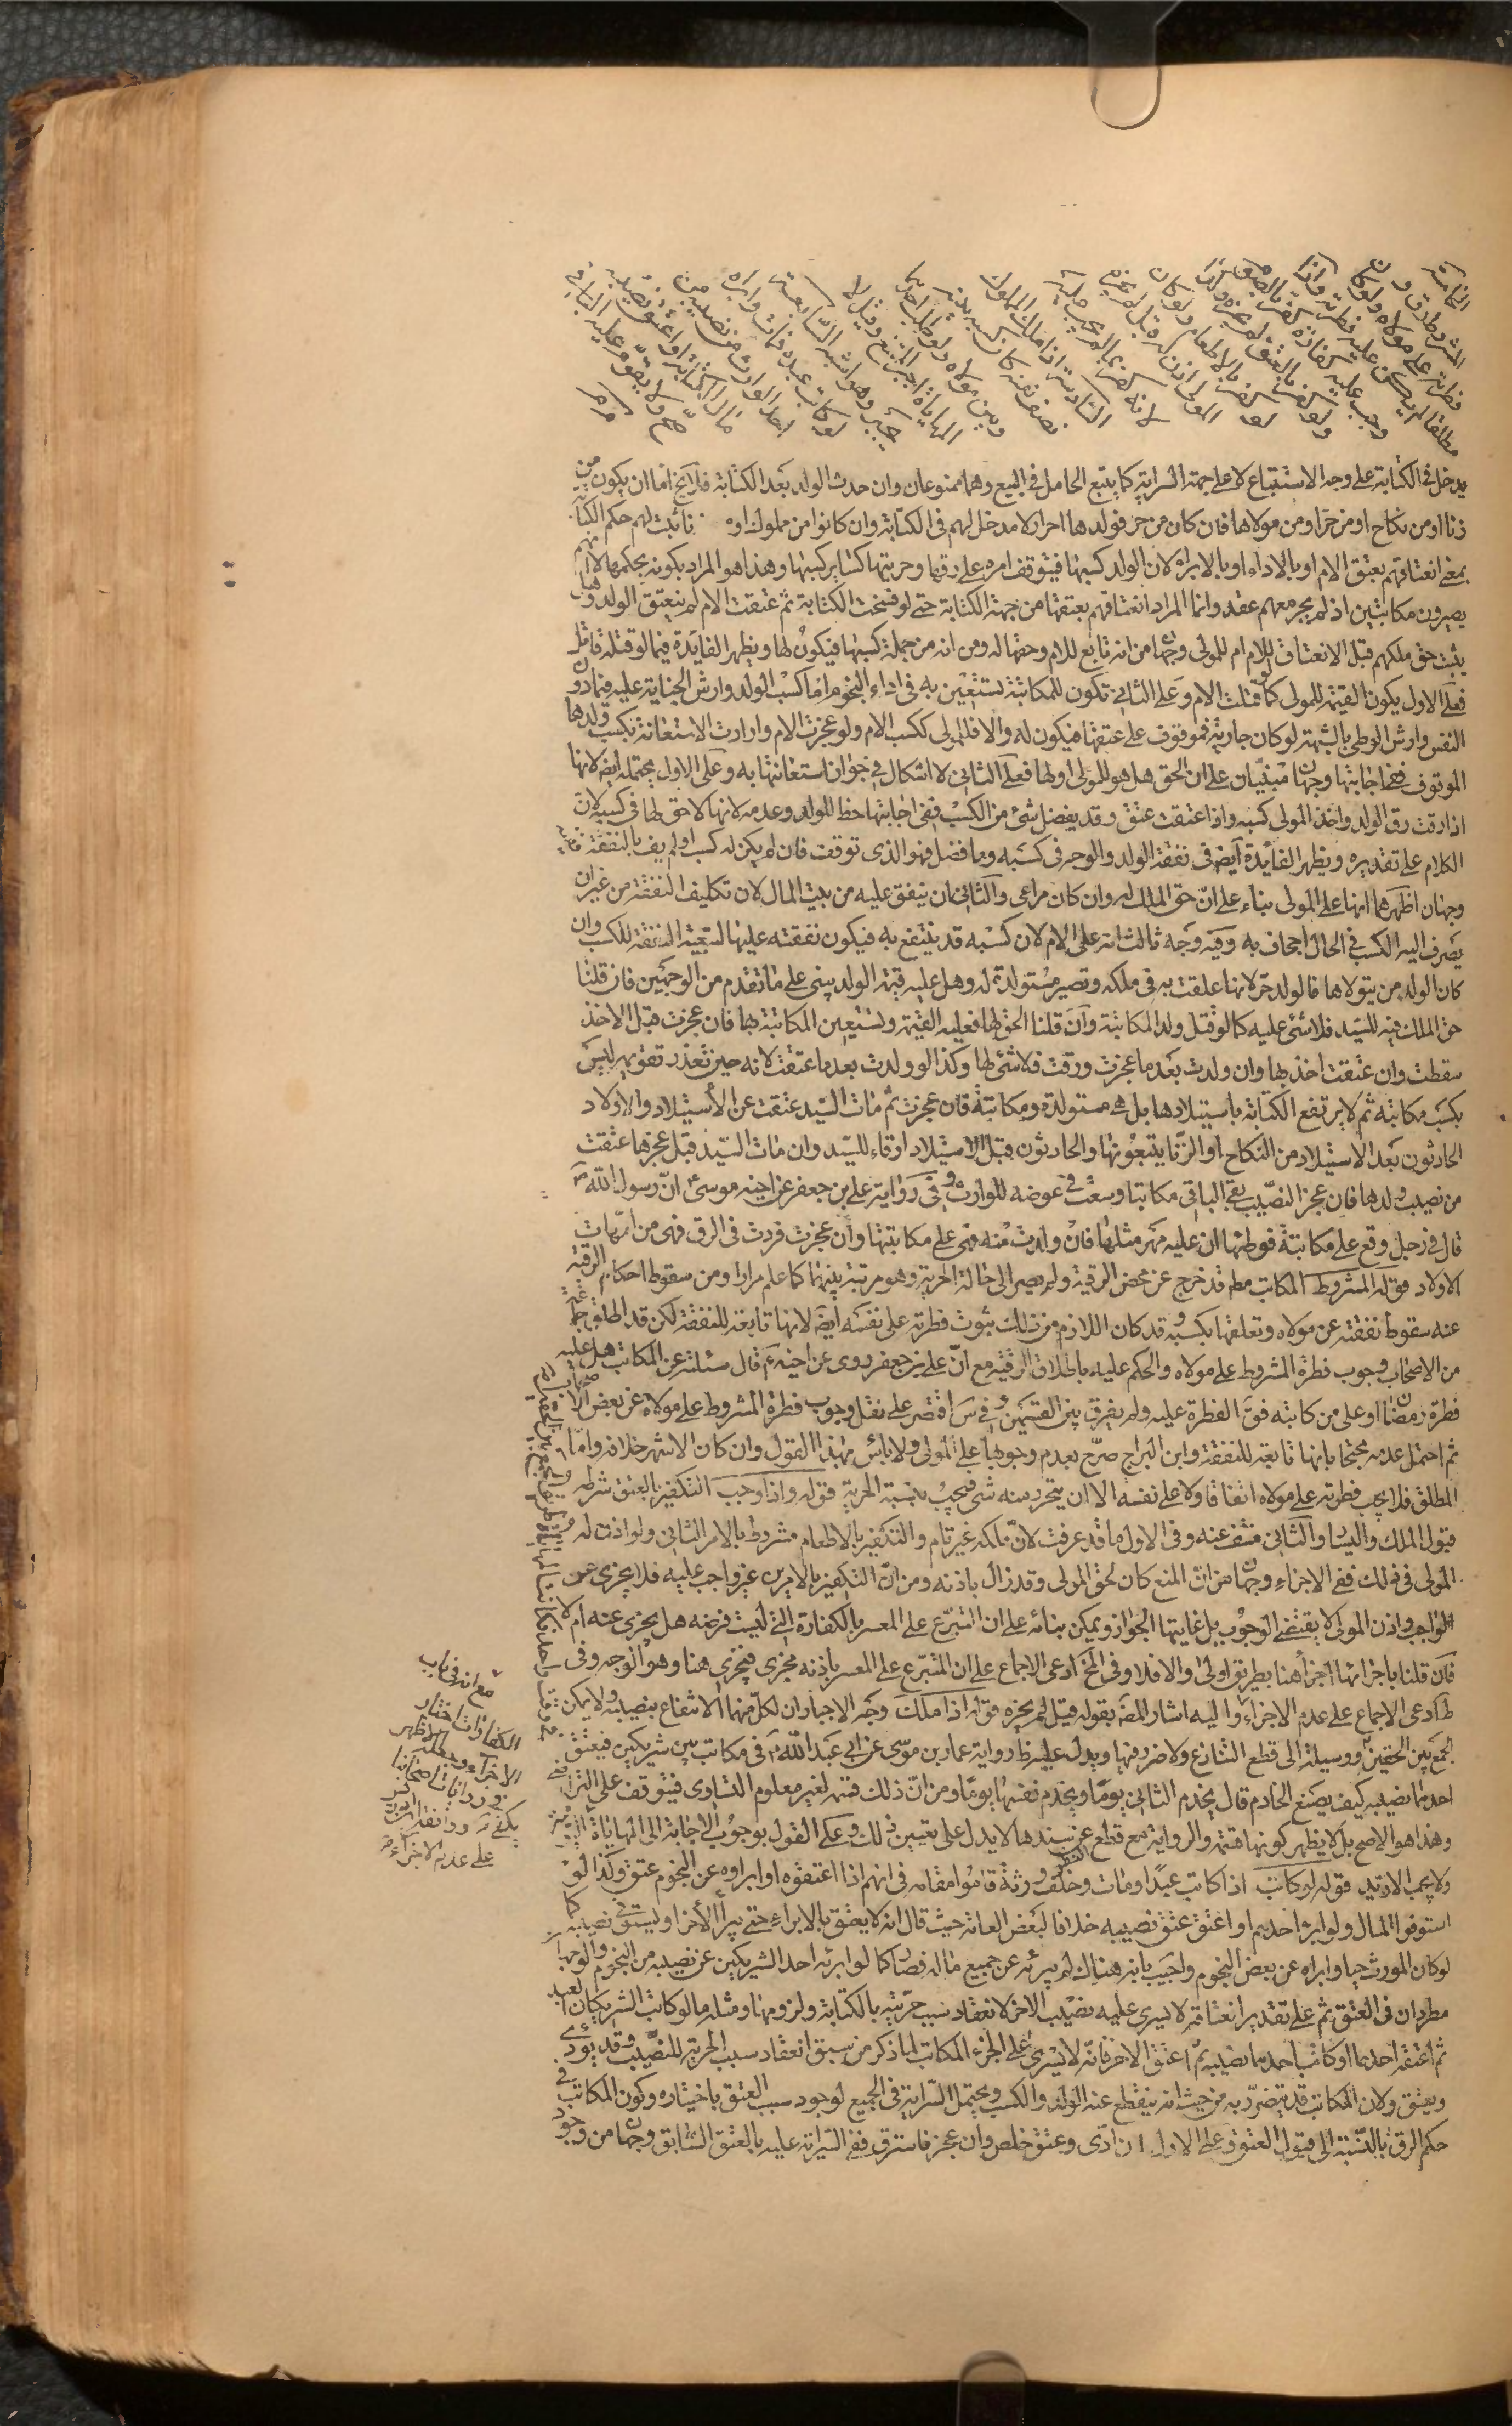 الخامسة
المشروط رق و
فطرته على مولاه ولو كان
مطلقا لم يكن عليه فطرته واذا
وجب عليه كفارة كفر بالصوم
ولو كفر بالعتق لم يجزه وكذا
لو كفر بالاطعام ولو كان
المولى اذن له قيل لم يجزه
لانه كفر بما لم يجب عليه
السادسة اذا ملك المملوك
نصف نفسه كان كسبه بينه
وبين مولاه ولو طلب احدهما
المهاياة اجبر الممتنع وقيل لا
يجبر وهو اشبه السابعة
لو كاتب عبده فمات وابراه
احد الوراث من نصيبه من
مال الكتابة او اعتق نصيبه
صح ولا يقوم عليه الباقي
يدخل في الكتابة على وجه الاستتباع لا على جهة السراية كما يتبع الحامل في البيع وهما ممنوعان وان حدث الولد بعد الكتابة فلا يخ اما ان يكون من
زنا او من نكاح او من حر او من مولاها فان كان من حر فولدها احرار لا مدخل لهم في الكتابة وان كانوا من مملوك او ه ثابت لهم حكم الكتابة
بمعنى انعتاقهم بعتق الام او بالاداء او بالابراء لان الولد كسبها فيتوقف امره على رقها وحريتها كسائر كسبها وهذا هو المراد بكونه بحكمها لا انهم
يصيرون مكاتبين اذ لم يجر معهم عقد وانما المراد انعتاقهم بعتقها من جهة الكتابة حتى لو فسخت الكتابة ثم عتقت الام لم ينعتق الولد وهل
يثبت حق ملكهم قبل الانعتاق للام ام للمولى وجهان من انه تابع للام وحقها له ومن انه من جملة كسبها فيكون لها ويظهر الفايدة فيما لو قتله قاتل
فعلى الاول يكون القيمة للمولى كما لو قتلت الام وعلى الثاني تكون للمكاتبة تستعين به في اداء النجوم اما كسب الولد وارش الجناية عليه فيما دون
النفس وارش الوطي بالشبهة لو كان جارية فموقوف على عتقها فيكون له والا فللمولى ككسب الام ولو عجزت الام وارادت الاستعانة بكسب ولدها
الموقوف ففي اجابتها وجهان مبنيان على ان الحق هل هو للمولى او لها فعلى الثاني لا اشكال في جواز استعانتها به وعلى الاول يحتمله ايضا لانها
اذا رقت رق الولد واخذ المولى كسبه واذا عتقت عتق وقد يفضل شئ من الكسب ففي اجابتها حظ للولد وعدمه لانها لا حق لها في كسبه لان
الكلام على تقديره ويظهر الفائدة ايضا في نفقة الولد والوجه في كسبه وما فضل فهو الذي توقف فان لم يكن له كسب او لم يف بالنفقة ففيه
وجهان اظهرهما انها على المولى بناء على ان حق الملك له وان كان مراعى والثاني ان ينفق عليه من بيت المال لان تكليفه النفقة من غير ان
يصرف اليه الكسب في الحال اجحاف به وفيه وجه ثالث انه على الام لان كسبه قد ينتفع به فيكون نفقته عليها لتبعية النفقة للكسب وان
كان الولد من مولاها فالولد حر لانها علقت به في ملكه وتصير مستولدة له وهل عليه قيمة الولد يبنى على ما تقدم من الوجهين فان قلنا
حق الملك فيه للسيد فلا شئ عليه كما لو قتل ولد المكاتبة وان قلنا الحق لها فعليه القيمة وتستعين المكاتبة بها فان عجزت قبل الاخذ
سقطت وان عتقت اخذتها وان ولدت بعد ما عجزت ورقت فلا شئ لها وكذا لو ولدت بعد ما عتقت لانه حين تعذر تقويمه ليس
بكسب مكاتبه ثم لا يرتفع الكتابة باستيلادها بل هي مستولدة ومكاتبة فان عجزت ثم مات السيد عتقت عن الاستيلاد والاولاد
الحادثون بعد الاستيلاد من النكاح او الزنا يتبعونها والحادثون قبل الاستيلاد ارقاء للسيد وان مات السيد قبل عجزها عتقت
من نصيب ولدها فان عجز النصيب بقي الباقي مكاتبا وسعت في عوضه للوارث وفي رواية علي بن جعفر عن اخيه موسى ان رسول الله ص
قال في رجل وقع على مكاتبة فوطئها ان عليه مهر مثلها فان ولدت منه فهي على مكاتبتها وان عجزت فردت في الرق فهي من امهات
الاولاد قوله المشروط المكاتب مطلقا قد خرج عن محض الرقية ولم يصر الى حالة الحرية وهو مرتبة بينهما كما علم مرارا ومن سقوط احكام الرقية
عنه سقوط نفقته عن مولاه وتعلقها بكسبه وقد كان اللازم من ذلك ثبوت فطرته على نفسه ايضا لانها تابعة للنفقة لكن قد اطلق جماعة
من الاصحاب وجوب فطرة المشروط على مولاه والحكم عليه باطلاق الرقية مع ان علي بن جعفر روى عن اخيه ع قال سئلته عن المكاتب هل عليه
فطرة رمضان او على من كاتبه فق الفطرة عليه ولم يفرق بين القسمين وفي س اقتصر على نقل وجوب فطرة المشروط على مولاه عن بعض الاصحاب
ثم احتمل عدمه محتجا بانها تابعة للنفقة وابن البراج صرح بعدم وجوبها على المولى ولا باس بهذا القول وان كان الاشهر خلافه واما
المطلق فلا يجب فطرته على مولاه اتفاقا ولا على نفسه الا ان يتحرر منه شئ فيجب بنسبة الحرية قوله واذا وجب التكفير بالعتق شرطه
قبول الملك واليسار والثاني منتف عنه وفي الاول ما قد عرفت لان ملكه غير تام والتكفير بالاطعام مشروط بالامر الثاني ولو اذن له
المولى في ذلك ففي الاجزاء وجهان من ان المنع كان لحق المولى وقد زال باذنه ومن ان التكفير بالامرين غير واجب عليه فلا يجزي عن
الواجب واذن المولى لا يقتضي الوجوب بل غايتها الجواز ويمكن بنائه على ان التبرع على المعسر بالكفارة التي ليست فرضه هل يجزي عنه ام لا
فان قلنا باجزائها اجزأ هنا بطريق اولى والا فلا وفي المخ ادعى الاجماع على ان المتبرع على المعسر باذنه مجزي فيجزي هنا وهو الوجه وفي
ط ادعى الاجماع على عدم الاجزاء واليه اشار المص بقوله قيل لم يجزه قوله اذا ملك وجه الاجبار ان لكل منهما الانتفاع بنصيبه ولا يمكن
الجمع بين الحقين ووسيلة الى قطع التنازع ولا ضرر فيها ويدل عليه ظ رواية عمار بن موسى عن ابي عبد الله ع في مكاتب بين شريكين فيعتق
احدهما نصيبه كيف يصنع الخادم قال يخدم الثاني يوما ويخدم نفسها يوما ومن ان ذلك قسمة لغير معلوم التساوي فيتوقف على التراضي
وهذا هو الاصح بل لا يظهر كونها قسمة والرواية مع قطع النظر عن سندها لا يدل على تعيين ذلك وعلى القول بوجوب الاجابة الى المهاياة
ولا يجب الازيد قوله لو كاتب اذا كاتب عبدا ومات وخلف ورثة قاموا مقامه في انهم اذا اعتقوه او ابراوه عن النجوم عتق وكذا لو
استوفوا المال ولو ابرا احدهم او اعتق عتق نصيبه خلافا لبعض العامة حيث قال انه لا يعتق بالابراء حتى يبرأ الاخر او يستوفي نصيبه كما
لو كان المورث حيا وابراه عن بعض النجوم واجيب بانه هناك لم يبرئه عن جميع ماله فصار كما لو ابرئه احد الشريكين عن نصيبه من النجوم والوجهان
مطردان في العتق ثم على تقدير انعتاقه لا يسري عليه نصيب الاخر لانعقاد سبب حريته بالكتابة ولزومها ومثله ما لو كاتب الشريكان العبد
ثم اعتقه احدهما او كاتب احدهما نصيبه ثم اعتق الاخر فانه لا يسري على الجزء المكاتب لما ذكر من سبق انعقاد سبب الحرية للنصيب وقد يؤدي
ويعتق ولان المكاتب قد يتضرر به من حيث انه ينقطع عنه الولد والكسب ويحتمل السراية في الجميع لوجود سبب العتق باختياره وكون المكاتب في
حكم الرق بالنسبة الى قبول العتق وعلى الاول ان ادى وعتق خلص وان عجز فاسترق ففي السراية عليه بالعتق السابق وجهان من وجود
مع انه في باب
الكفارات اختار
الاجزاء وجعله الاظهر
في روايات اصحابنا
على عدم الاجزاء